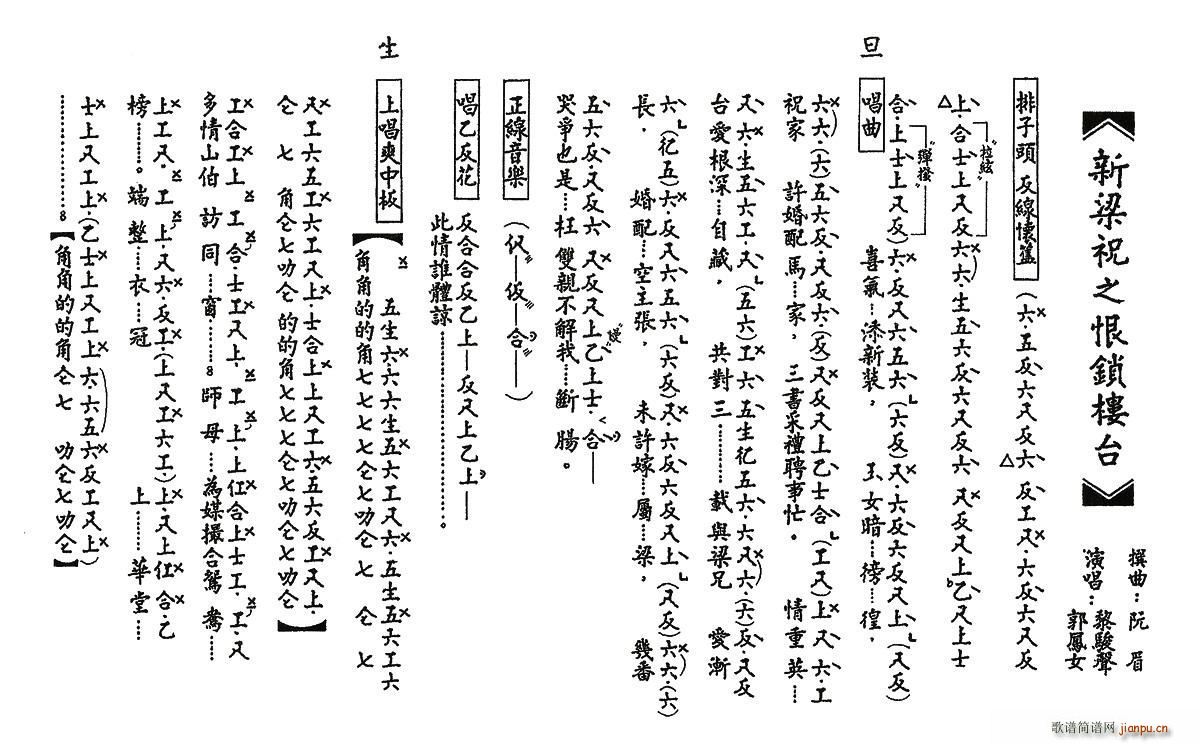 新梁祝之恨鎖樓台
撰曲：阮眉
演唱：黎駿聲
郭鳳女
排子頭 反線懷舊
（六·五反六又反六 反工又·六反六又反
上·合士上又反六六·生五六反六又反六 又反又上乙又上士
"拉絃"
旦
唱曲
合·上士上又反）六·反又六五六（六反）又·六反六反又上（又反）
"彈撥"
喜氣…添新裝， 玉女暗…徬…徨，
六六（六）五六反·又反六（反）又反又上乙士合（工又）上又六·工
祝家 許婚配 馬…家， 三書采禮聘事忙。 情重英…
又·六·生五六工·又（五六）工·六五生伬五六·六又六·（六）反·又反
台愛根深…自藏， 共對三……載與梁兄 愛漸
六（伬五）六·反又六五六（六反）又·六反六反又上（又反）六六·（六）
長， 婚配…空主張， 未許嫁…屬…梁， 幾番
五六反又反六 又反又上乙上士·合——
"硬"
哭爭也是…枉 雙親不解我…斷 腸。
正線音樂
（伬—仮—合——）
唱乙反花
反合合反乙上—反又上乙上——
此情誰體諒…………………。
生
上唱爽中板
【 五生六·六六生五六工又六·五生五六工六
角角的的角七七七七仑七叻仑 七 仑 七
又工六五工六工又上·士合上上又工六·五六反工又上·
仑 七 角仑七叻仑 的的角七七七仑七叻仑七叻仑 】
工合工上 工合·士工又上 工上·上仜合上士工·工·又
多情山伯 訪 同…窗………8 師 母…為媒撮合鴛 鴦……
上工又·工上·又六·反工·（上又工六工·）上·又上仜合·乙
榜………。端 整……衣……冠 上………華堂…
士上又工上·（乙士上又工上六·六五六反工又上）
……………8【角角的的角仑七 叻仑七叻仑】
歌谱简谱网 jianpu.cn